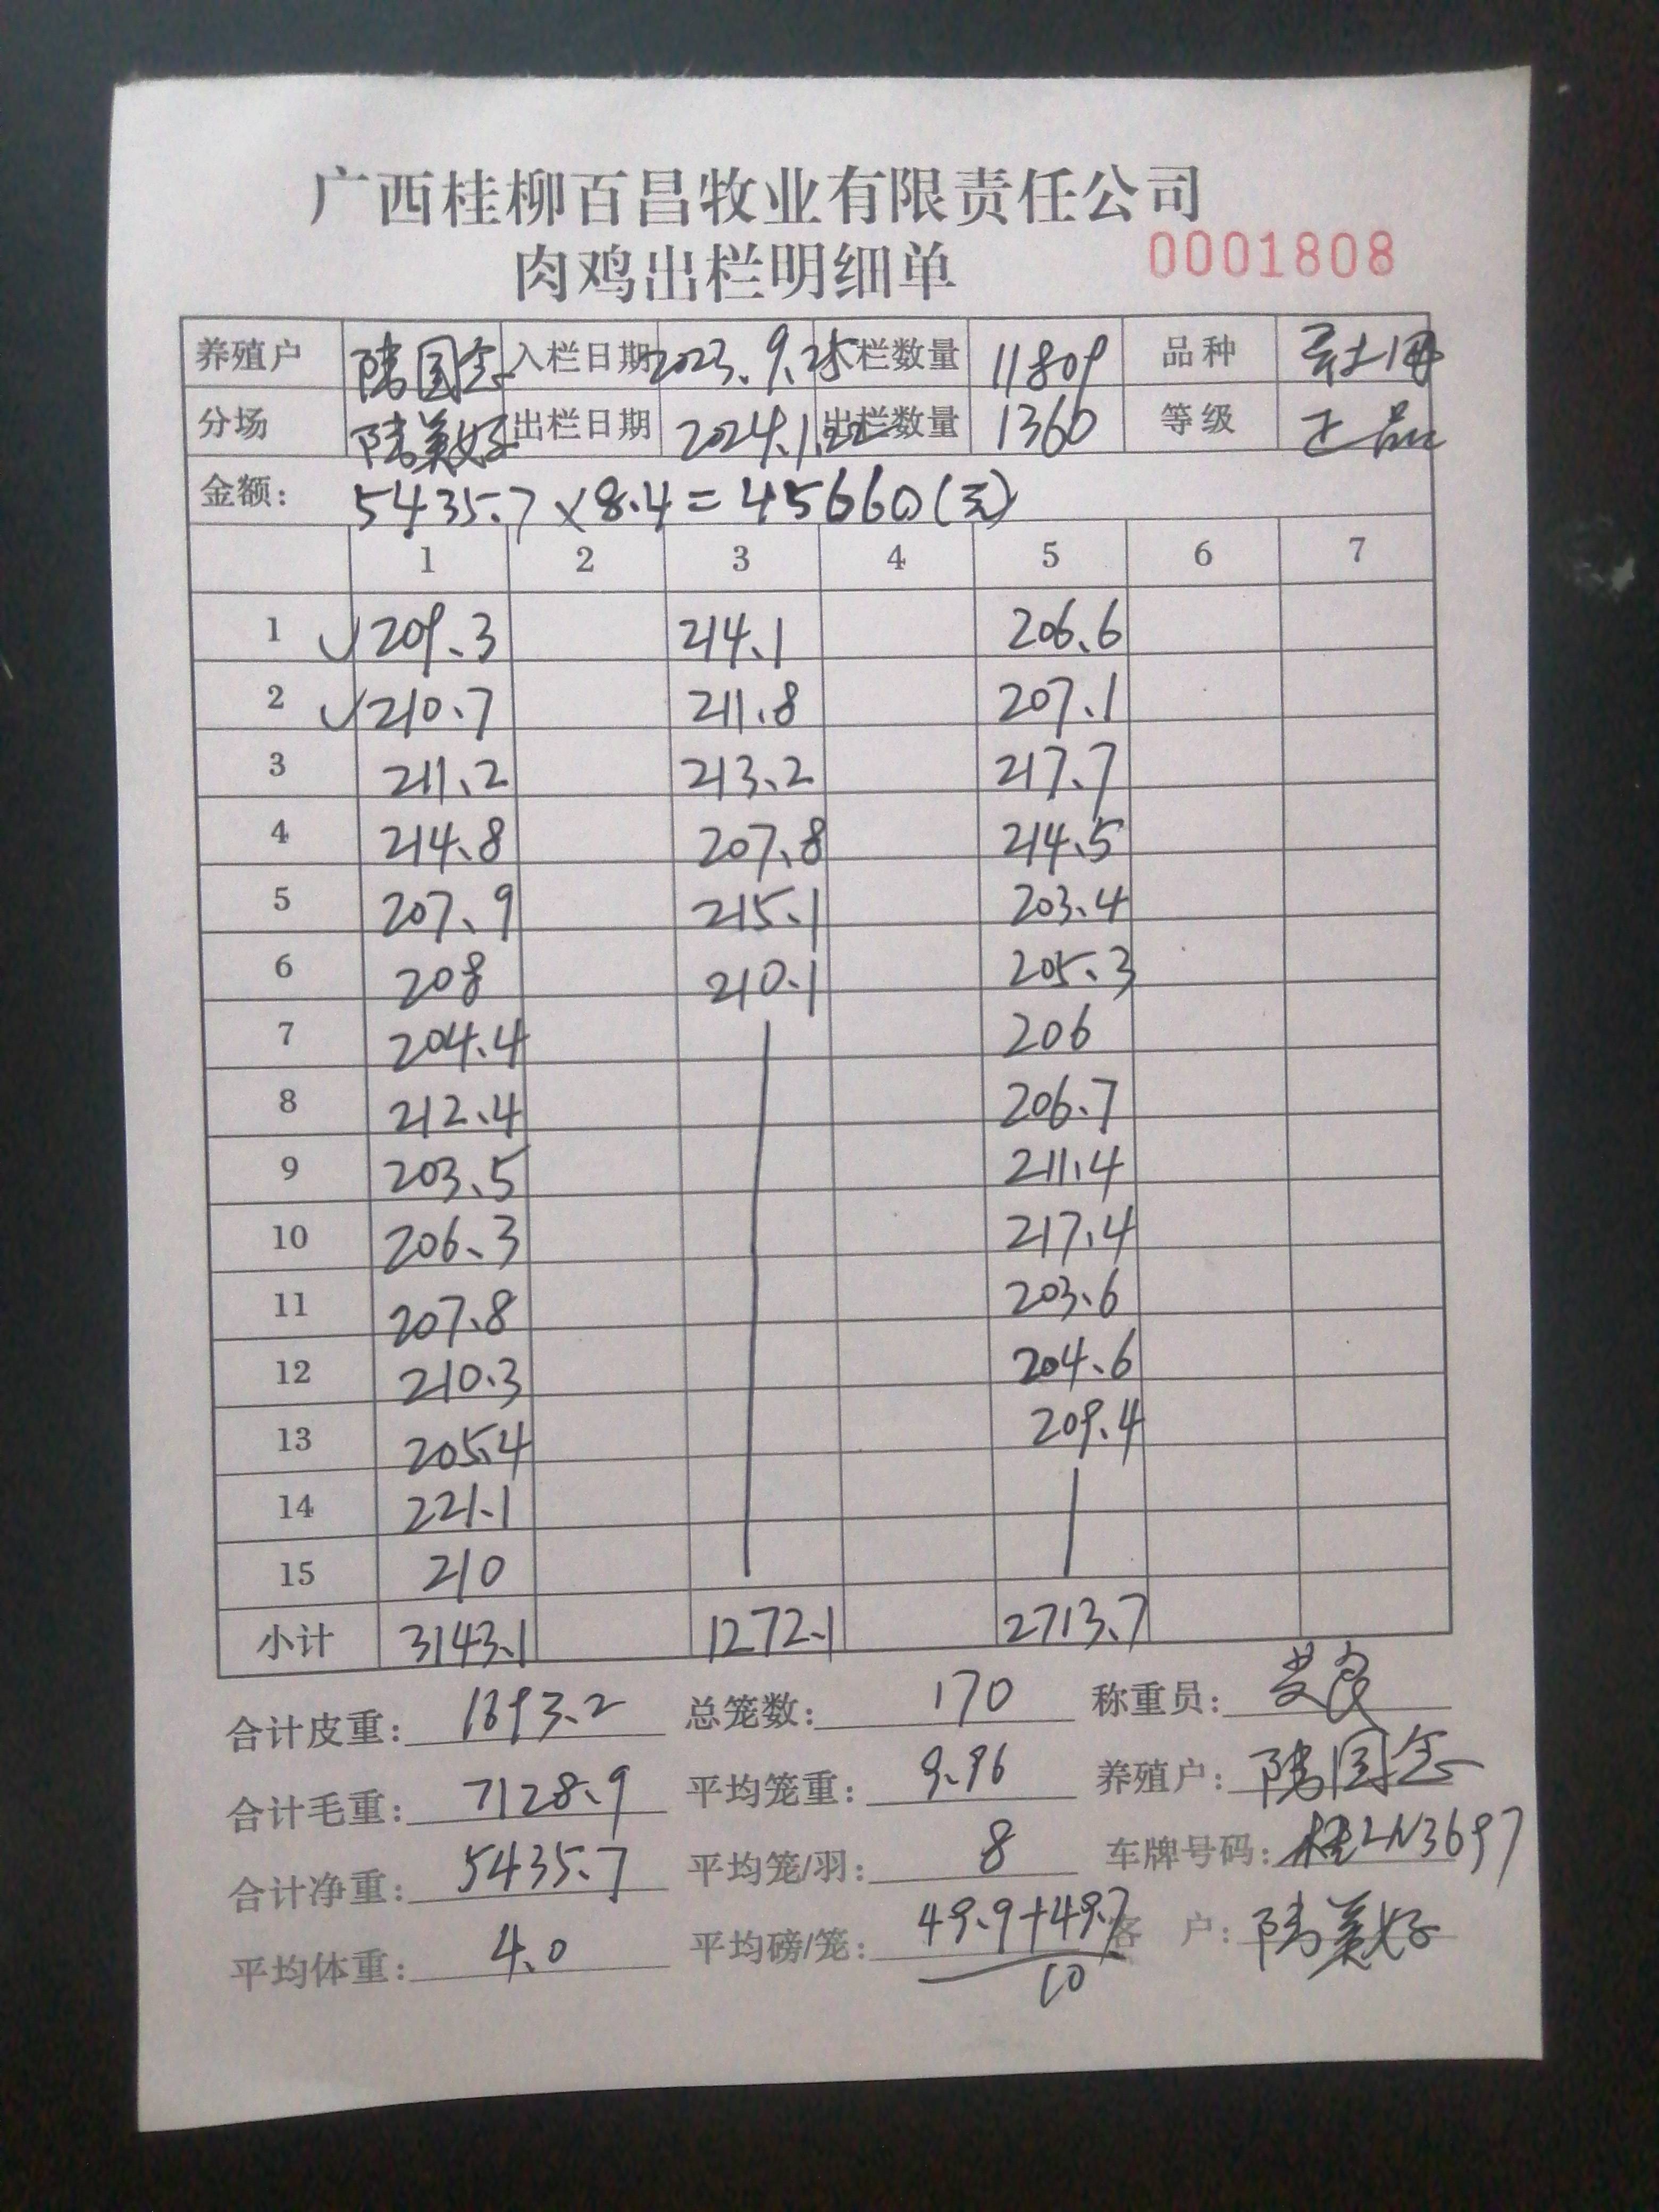 广西桂柳百昌牧业有限责任公司
肉鸡出栏明细单 0001808
养殖户 陆国念 入栏日期 2023.9.25 栏数量 11809 品种
分场 陆美好 出栏日期 2024.1.22 出栏数量 1360 等级 正品
金额: 5435.7×8.4=45660(元)
1 2 3 4 5 6 7
1 √209.3 214.1 206.6
2 √210.7 211.8 207.1
3 211.2 213.2 217.7
4 214.8 207.8 214.5
5 207.9 215.1 203.4
6 208 210.1 205.3
7 204.4 206
8 212.4 206.7
9 203.5 211.4
10 206.3 217.4
11 207.8 203.6
12 210.3 204.6
13 205.4 209.4
14 221.1
15 210
小计 3143.1 1272.1 2713.7
合计皮重: 1693.2 总笼数: 170 称重员:
合计毛重: 7128.9 平均笼重: 9.96 养殖户: 陆国念
合计净重: 5435.7 平均笼/羽: 8 车牌号码: 桂LN3697
平均体重: 4.0 平均磅/笼: 49.9+49.7 客 户: 陆美好
10